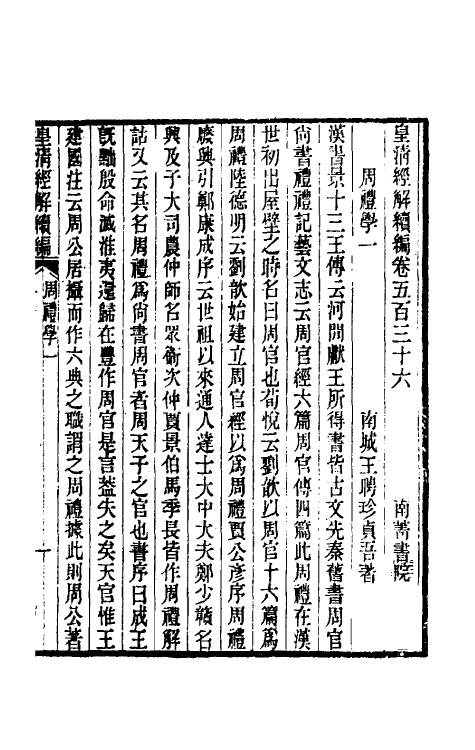 皇清經解續編卷五百三十六　南菁書院
周禮學一　南城王聘珍貞吾著
漢書景十三王傳云河間獻王所得書皆古文先秦舊書周官
尚書禮禮記藝文志云周官經六篇周官傳四篇此周禮在漢
世初出屋壁之時名曰周官也荀悅云劉歆以周官十六篇爲
周禮陸德明云劉歆始建立周官經以爲周禮賈公彥序周禮
廢興引鄭康成序云世祖以來通人達士大中大夫鄭少贛名
興及子大司農仲師名眾衞次仲賈景伯馬季長皆作周禮解
詁又云其名周禮爲尚書周官者周天子之官也書序曰成王
旣黜殷命滅淮夷還歸在豐作周官是言葢失之矣天官惟王
建國注云周公居攝而作六典之職謂之周禮據此則周公著
皇清經解續編　周禮學一　一